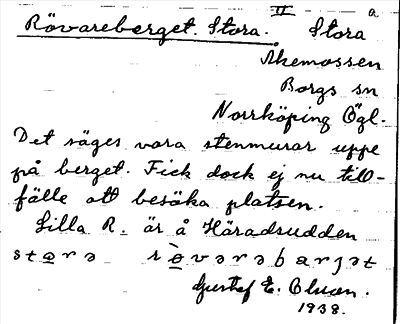 II a
Rövareberget. Stora. Stora
Åkemossen
Borgs sn
Norrköping Ögl.
Det säges vara stenmurar uppe
på berget. Fick dock ej nu till-
fälle att besöka platsen.
Lilla R. är å Häradsudden
Gustef E. Bluon.
1938.